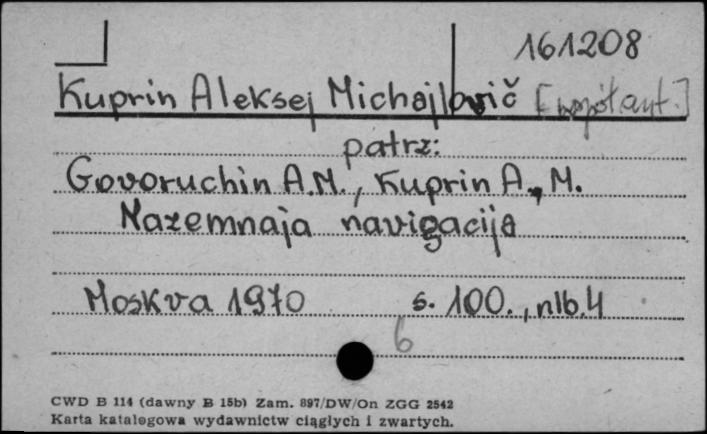 161208
Kuprin Aleksej Michajlovič [współaut.]
patrz:
Govoruchin A.M., Kuprin A., M.
Nazemnaja navigacija
Moskva 1970 s. 100., nlb. 4
6
CWD B 114 (dawny B 15b) Zam. 897/DW/On ZGG 2542
Karta katalogowa wydawnictw ciągłych i zwartych.